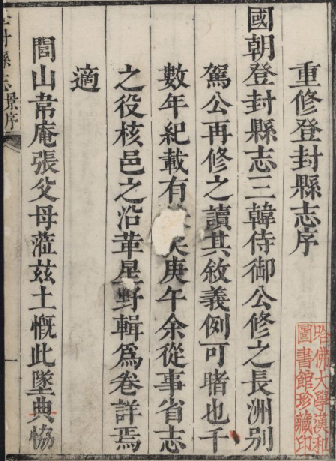 重修登封縣志序
國朝登封縣志三韓侍御公修之長洲別
駕公再修之讀其敘義例可睹也千
數年紀載有矣庚午余從事省志
之役核邑之沿革星野輯爲卷詳焉
適
閭山庵張父母蒞茲土慨此墜典恊
縣志
序
哈佛大學漢和
圖書館珍藏印